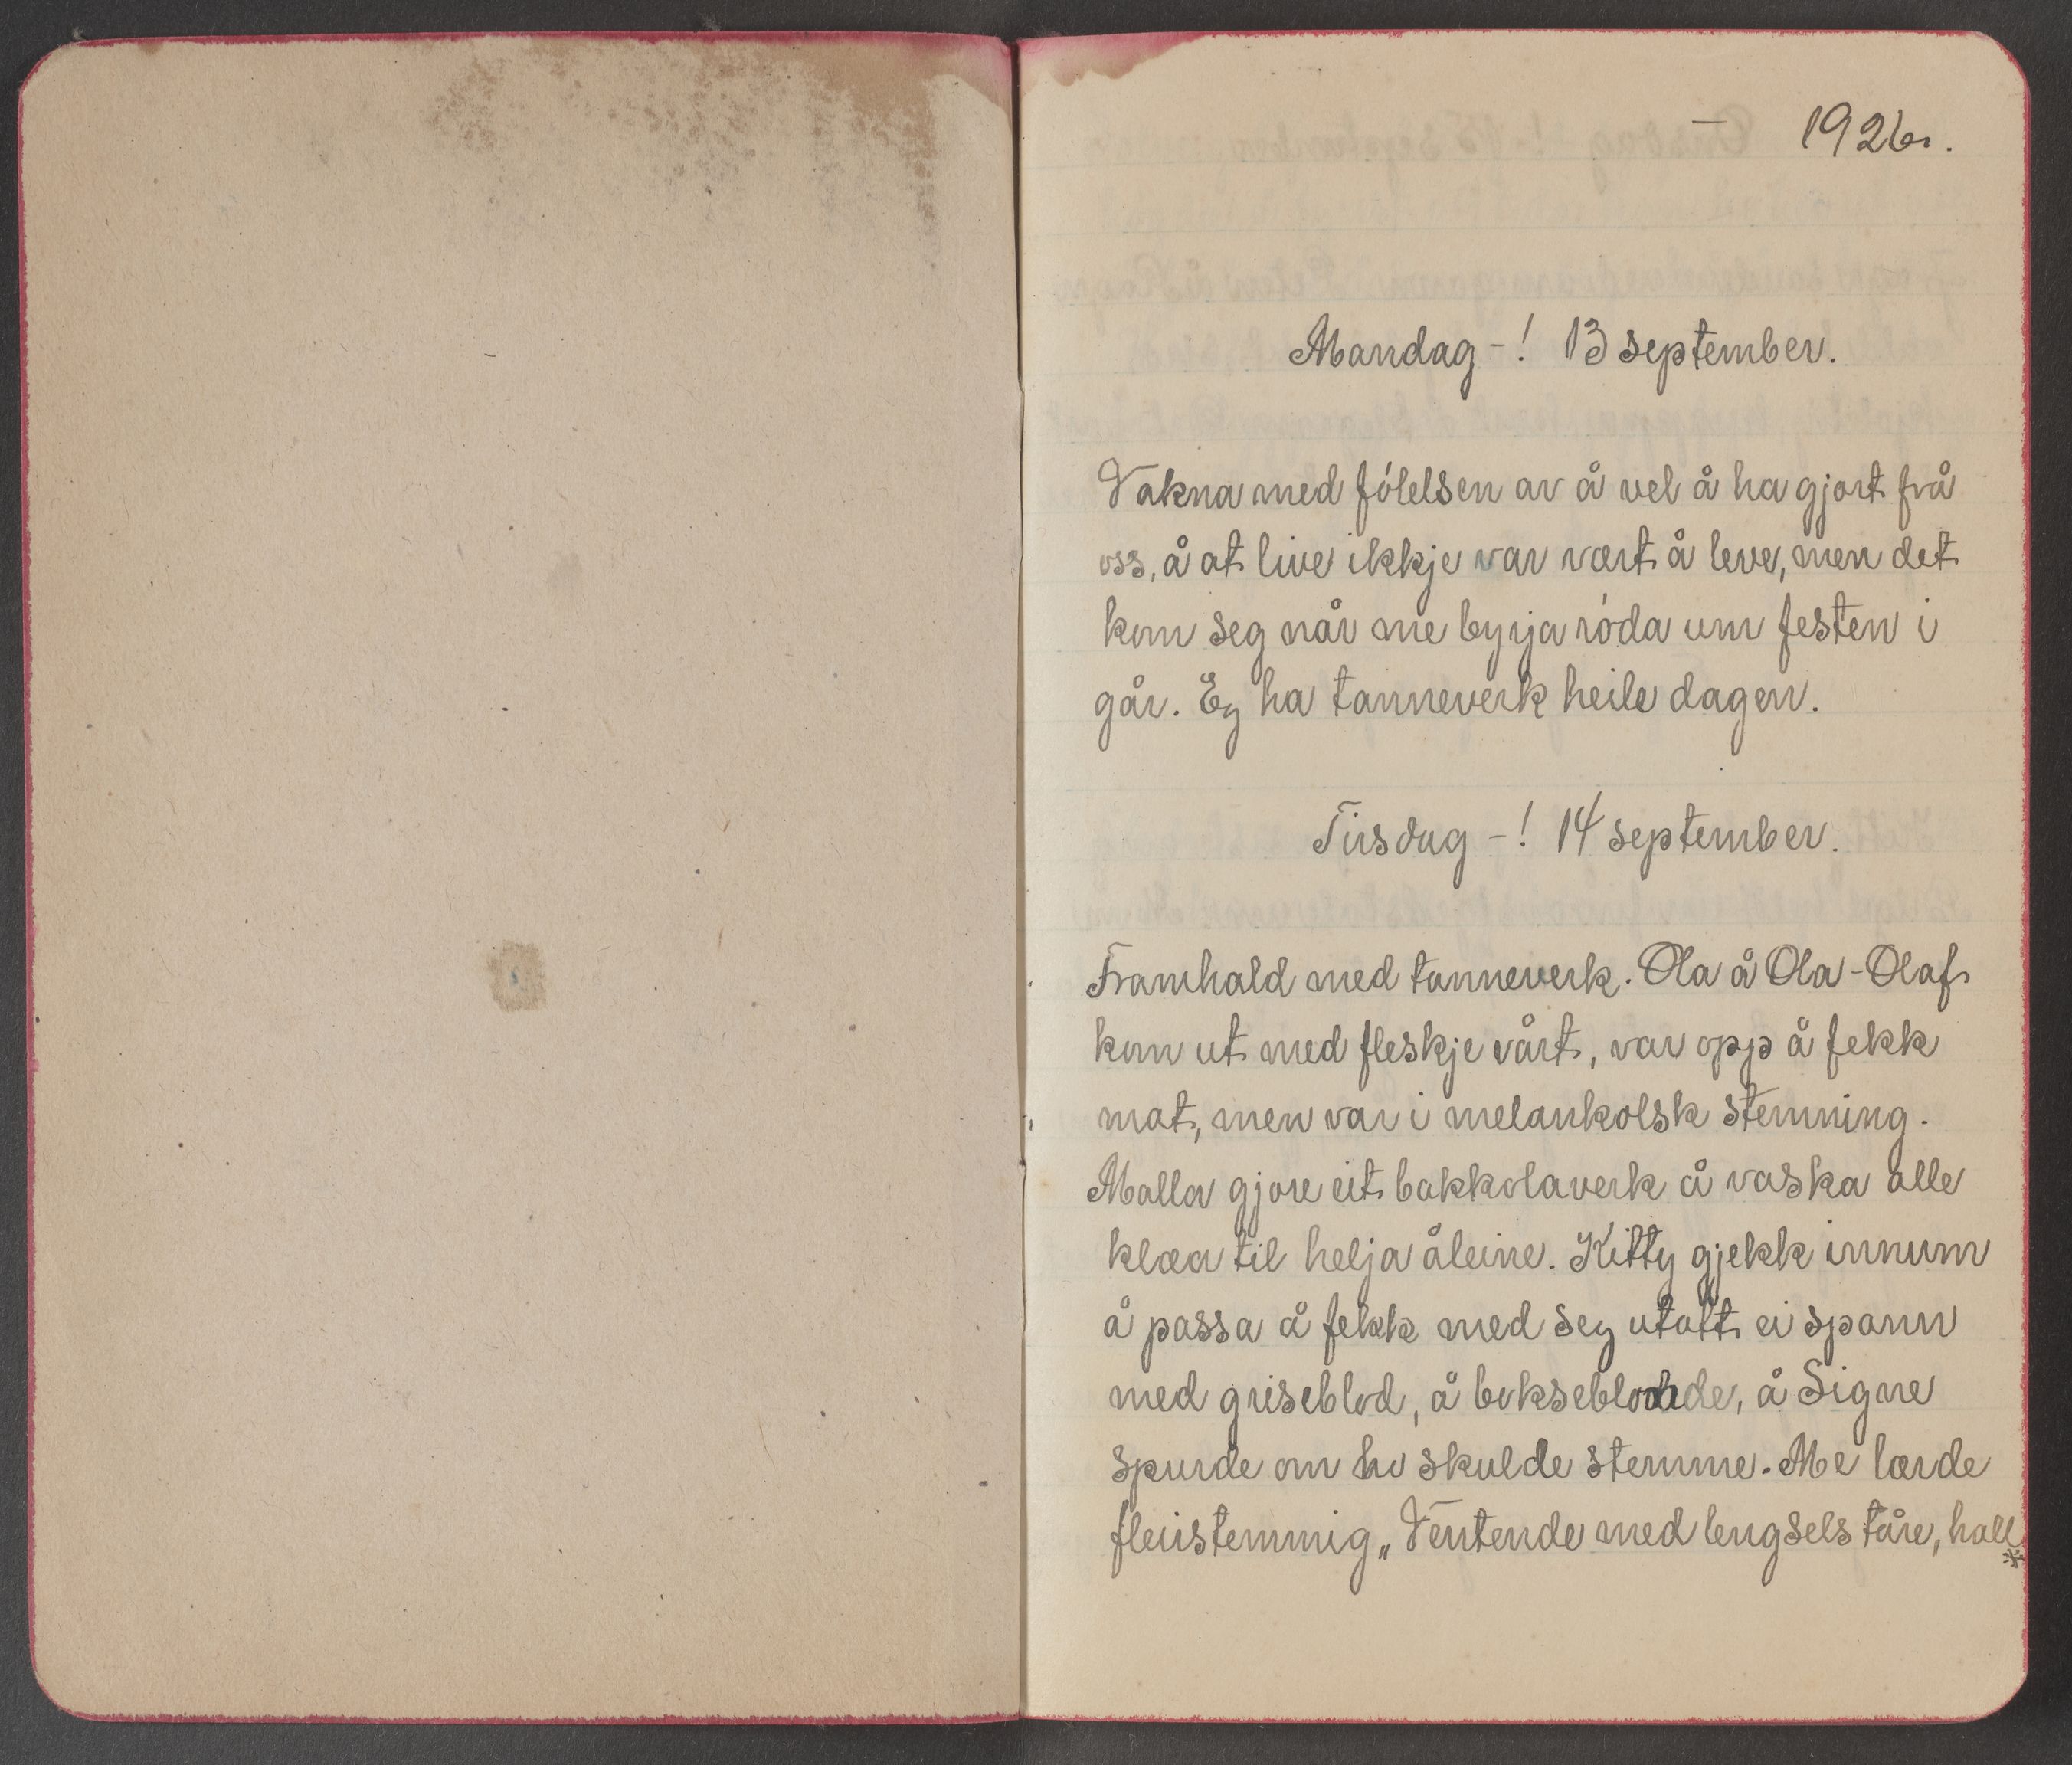 1926.
Mandag -! 13 september.
Vakna med fólelsen av å vel å ha gjort frå
oss, å at live ikkje var vært å leve, men det
kom seg når me byrja róda um festen i
går. Eg ha tanneverk heile dagen.
Tirsdag -! 14 september.
Framhald med tanneverk. Ola å Ola-Olaf
kom ut med fleskje vårt, var opp å fekk
mat, men var i melankolsk stemning.
Malla gjore eit bakkolaverk å vaska alle
klæa til helja åleine. Kitty gjekk innum
å passa å fekk med seg utatt ei spann
med griseblod, å bokseblodde, å Signe
spurde om ho skulde stemme. Me lærde
fleirstemmig „Ventende med lengsels tåre, hall
*